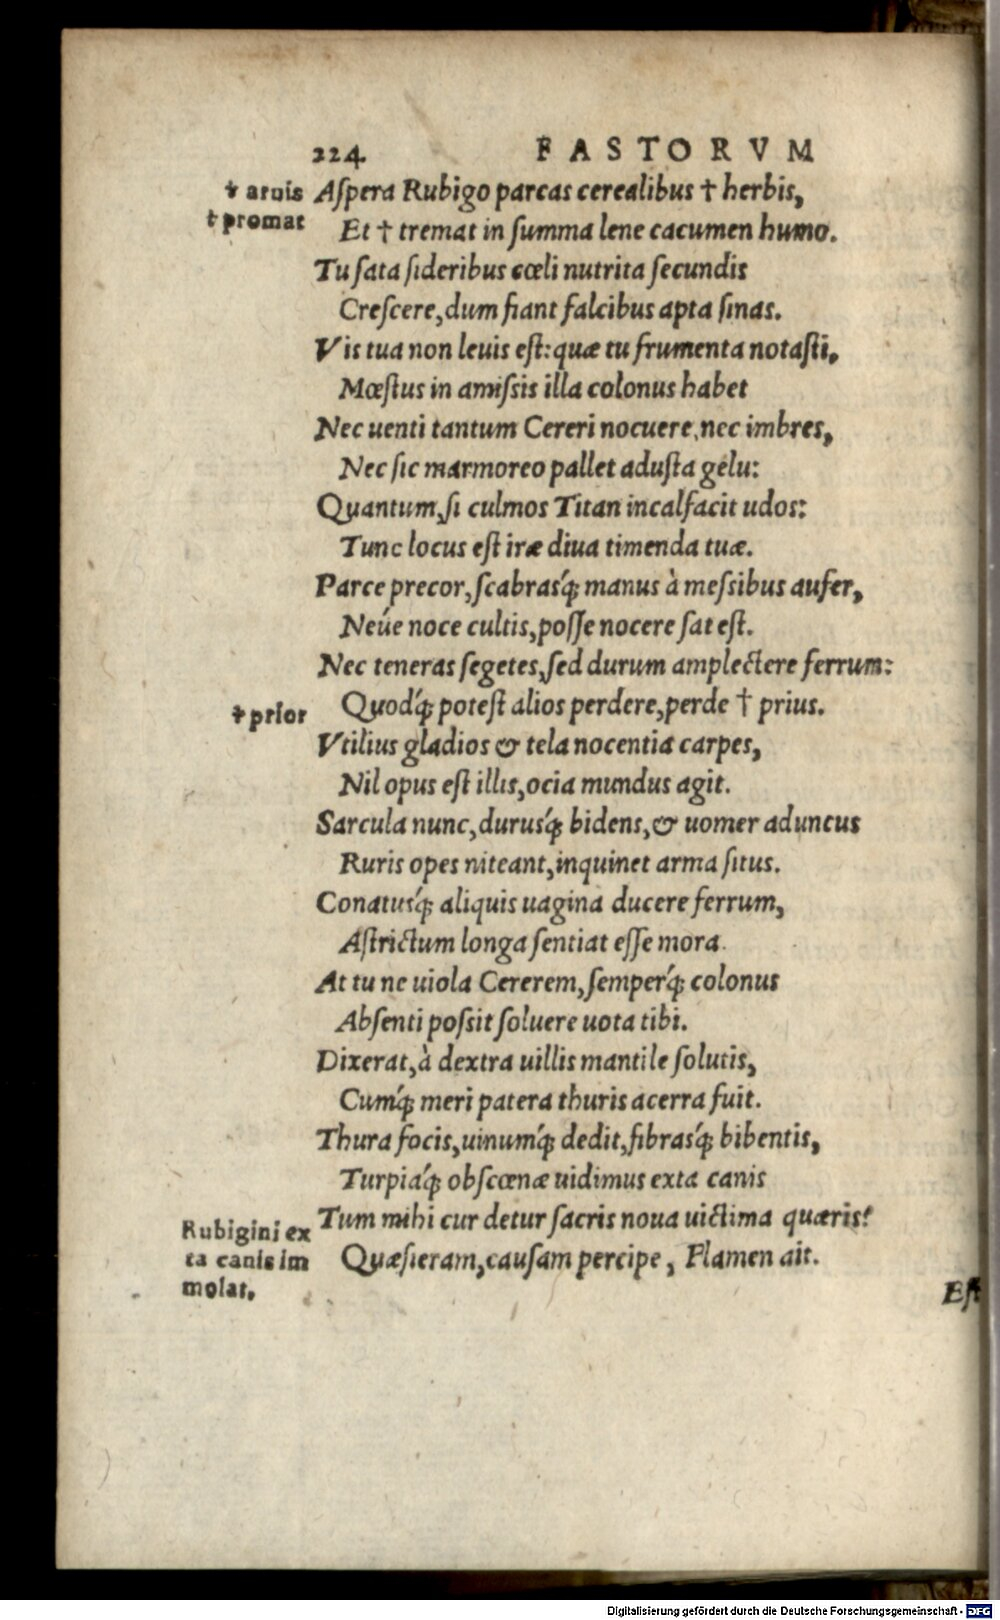 224 FASTORVM
† aruis Aſpera Rubigo parcas cerealibus † herbis,
† promat Et † tremat in ſumma lene cacumen humo.
Tu ſata ſideribus cœli nutrita ſecundis
Creſcere, dum fiant falcibus apta ſinas.
Vis tua non leuis eſt: quæ tu frumenta notaſti,
Mœſtus in amiſsis illa colonus habet
Nec uenti tantum Cereri nocuere, nec imbres,
Nec ſic marmoreo pallet aduſta gelu:
Quantum, ſi culmos Titan incalfacit udos:
Tunc locus eſt iræ diua timenda tuæ.
Parce precor, ſcabrasq́; manus à meſsibus aufer,
Neúe noce cultis, poſſe nocere ſat eſt.
Nec teneras ſegetes, ſed durum amplectere ferrum:
† prior Quodq́; poteſt alios perdere, perde † prius.
Vtilius gladios & tela nocentia carpes,
Nil opus eſt illis, ocia mundus agit.
Sarcula nunc, durusq́; bidens, & uomer aduncus
Ruris opes niteant, inquinet arma ſitus.
Conatusq́; aliquis uagina ducere ferrum,
Aſtrictum longa ſentiat eſſe mora.
At tu ne uiola Cererem, ſemperq́; colonus
Abſenti poſsit ſoluere uota tibi.
Dixerat, à dextra uillis mantile ſolutis,
Cumq́; meri patera thuris acerra fuit.
Thura focis, uinumq́; dedit, fibrasq́; bibentis,
Turpiaq́; obſcœnæ uidimus exta canis
Tum mihi cur detur ſacris noua uictima quæris?
Quæſieram, cauſam percipe, Flamen ait.
Rubigini ex
ta canis im
molat.
Eſt
Digitalisierung gefördert durch die Deutsche Forschungsgemeinschaft - DFG